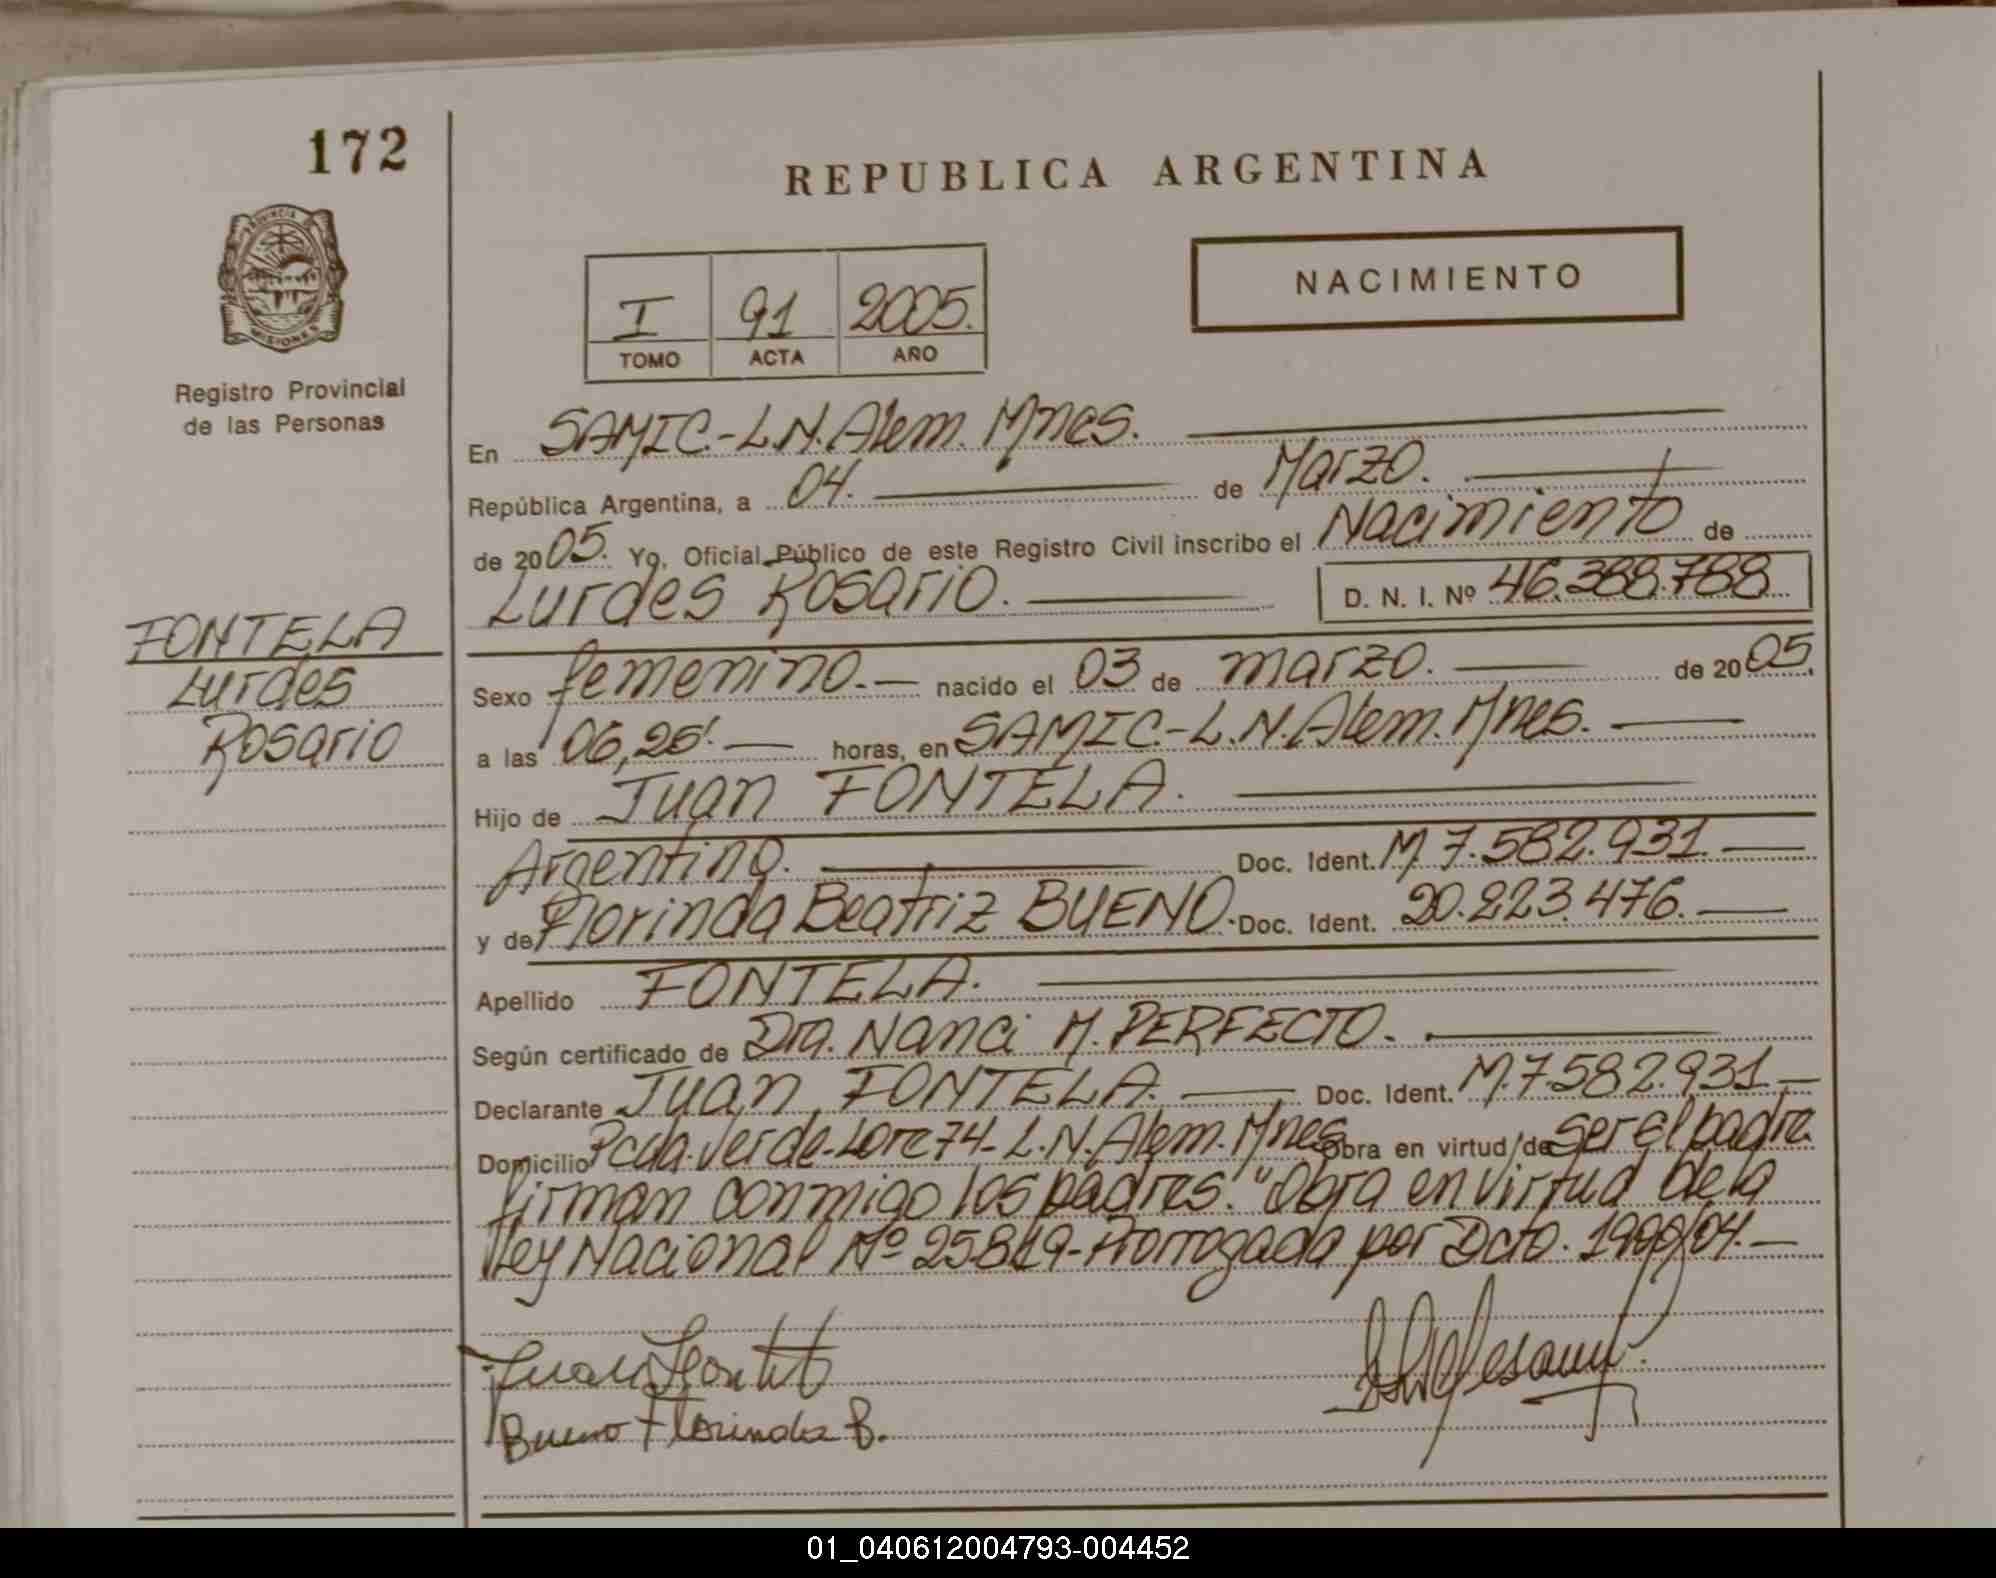 172
REPUBLICA ARGENTINA
PROVINCIA
MISIONES
Registro Provincial
de las Personas
I 91 2005.
TOMO ACTA AÑO
NACIMIENTO
En SAMIC.-L.N.Alem. Mnes.
República Argentina, a 04. de Marzo.
de 2005. Yo, Oficial Público de este Registro Civil inscribo el Nacimiento de
Lurdes Rosario. D. N. I. Nº 46.388.788
FONTELA
Lurdes
Rosario
Sexo femenino.- nacido el 03 de marzo. de 2005.
a las 06,25'. horas, en SAMIC.-L.N.Alem. Mnes.
Hijo de Juan FONTELA.
Argentino. Doc. Ident. M. 7.582.931.
y de Florinda Beatriz BUENO. Doc. Ident. 20.223.476.
Apellido FONTELA.
Según certificado de Dra. Nanci M. PERFECTO.
Declarante Juan FONTELA. Doc. Ident. M.7.582.931
Domicilio Pcda. Verde-Lote 74- L.N.Alem. Mnes Obra en virtud de ser el padre
firman conmigo los padres. "Obra en virtud de la
ley Nacional Nº 25819-Prorrogada por Dcto. 1999/04.-
Juan Fontela
Bueno Florinda B.
01_040612004793-004452